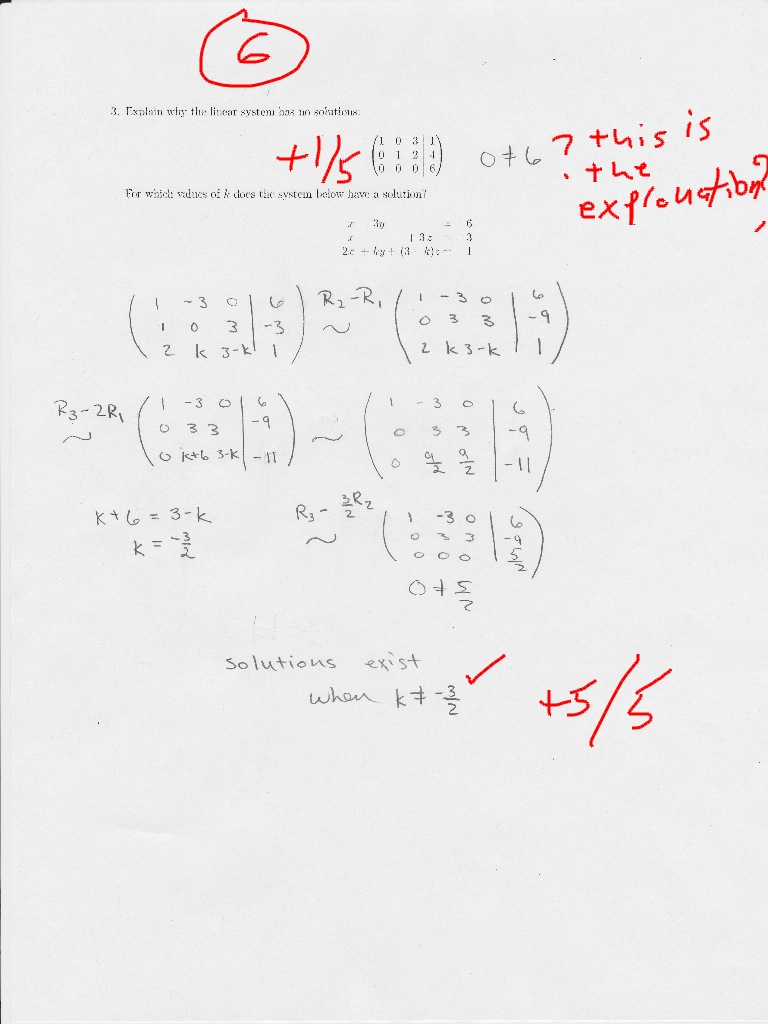 6
3. Explain why the linear system has no solutions:
+1/5
1 0 3 | 1
0 1 2 | 4
0 0 0 | 6
0 ≠ 6
? this is
the
explanation?
For which values of k does the system below have a solution?
x 3y = 6
x + 3z 3
2x + ky + (3 k)z 1
1 -3 0 | 6
1 0 3 | -3
2 k 3-k | 1
R2-R1
~
1 -3 0 | 6
0 3 3 | -9
2 k 3-k | 1
R3-2R1
~
1 -3 0 | 6
0 3 3 | -9
0 k+6 3-k | -11
~
1 -3 0 | 6
0 3 3 | -9
0 9/2 9/2 | -11
k+6 = 3-k
k = -3/2
R3 - 3/2 R2
~
1 -3 0 | 6
0 3 3 | -9
0 0 0 | 5/2
0 ≠ 5/2
solutions exist
when k ≠ -3/2
+5/5